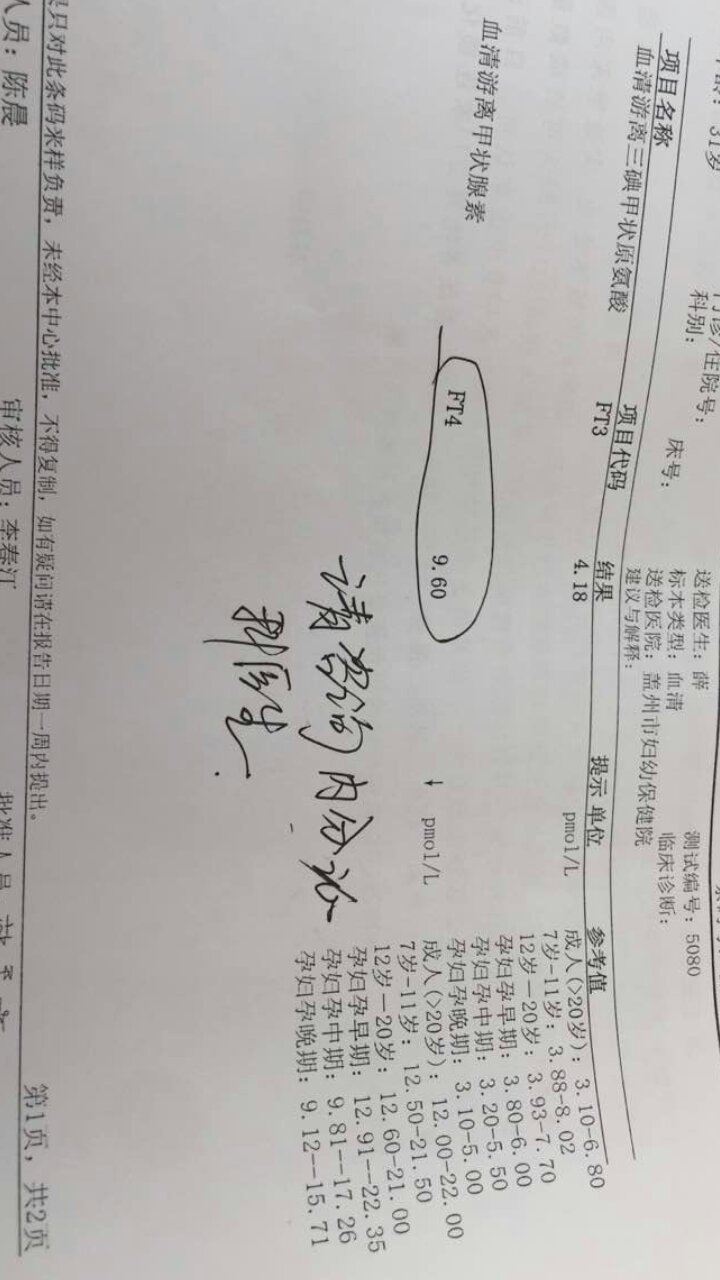 31岁
门诊/住院号：
科别：
床号：
送检医生：薛
标本类型：血清
送检医院：盖州市妇幼保健院
建议与解释：
测试编号：5080
临床诊断：
项目名称 项目代码 结果 提示 单位 参考值
血清游离三碘甲状原氨酸 FT3 4.18 pmol/L 成人(>20岁)：3.10-6.80
7岁-11岁：3.88-8.02
12岁－20岁：3.93-7.70
孕妇孕早期：3.80-6.00
孕妇孕中期：3.20-5.50
孕妇孕晚期：3.10-5.00
血清游离甲状腺素 FT4 9.60 ↓ pmol/L 成人(>20岁)：12.00-22.00
7岁-11岁：12.50-21.50
12岁－20岁：12.60-21.00
孕妇孕早期：12.91--22.35
孕妇孕中期：9.81--17.26
孕妇孕晚期：9.12--15.71
请咨询内分泌
科医生.
只对此条码来样负责，未经本中心批准，不得复制，如有疑问请在报告日期一周内提出。
人员：陈晨 审核人员：李春江 批准人员
第1页，共2页